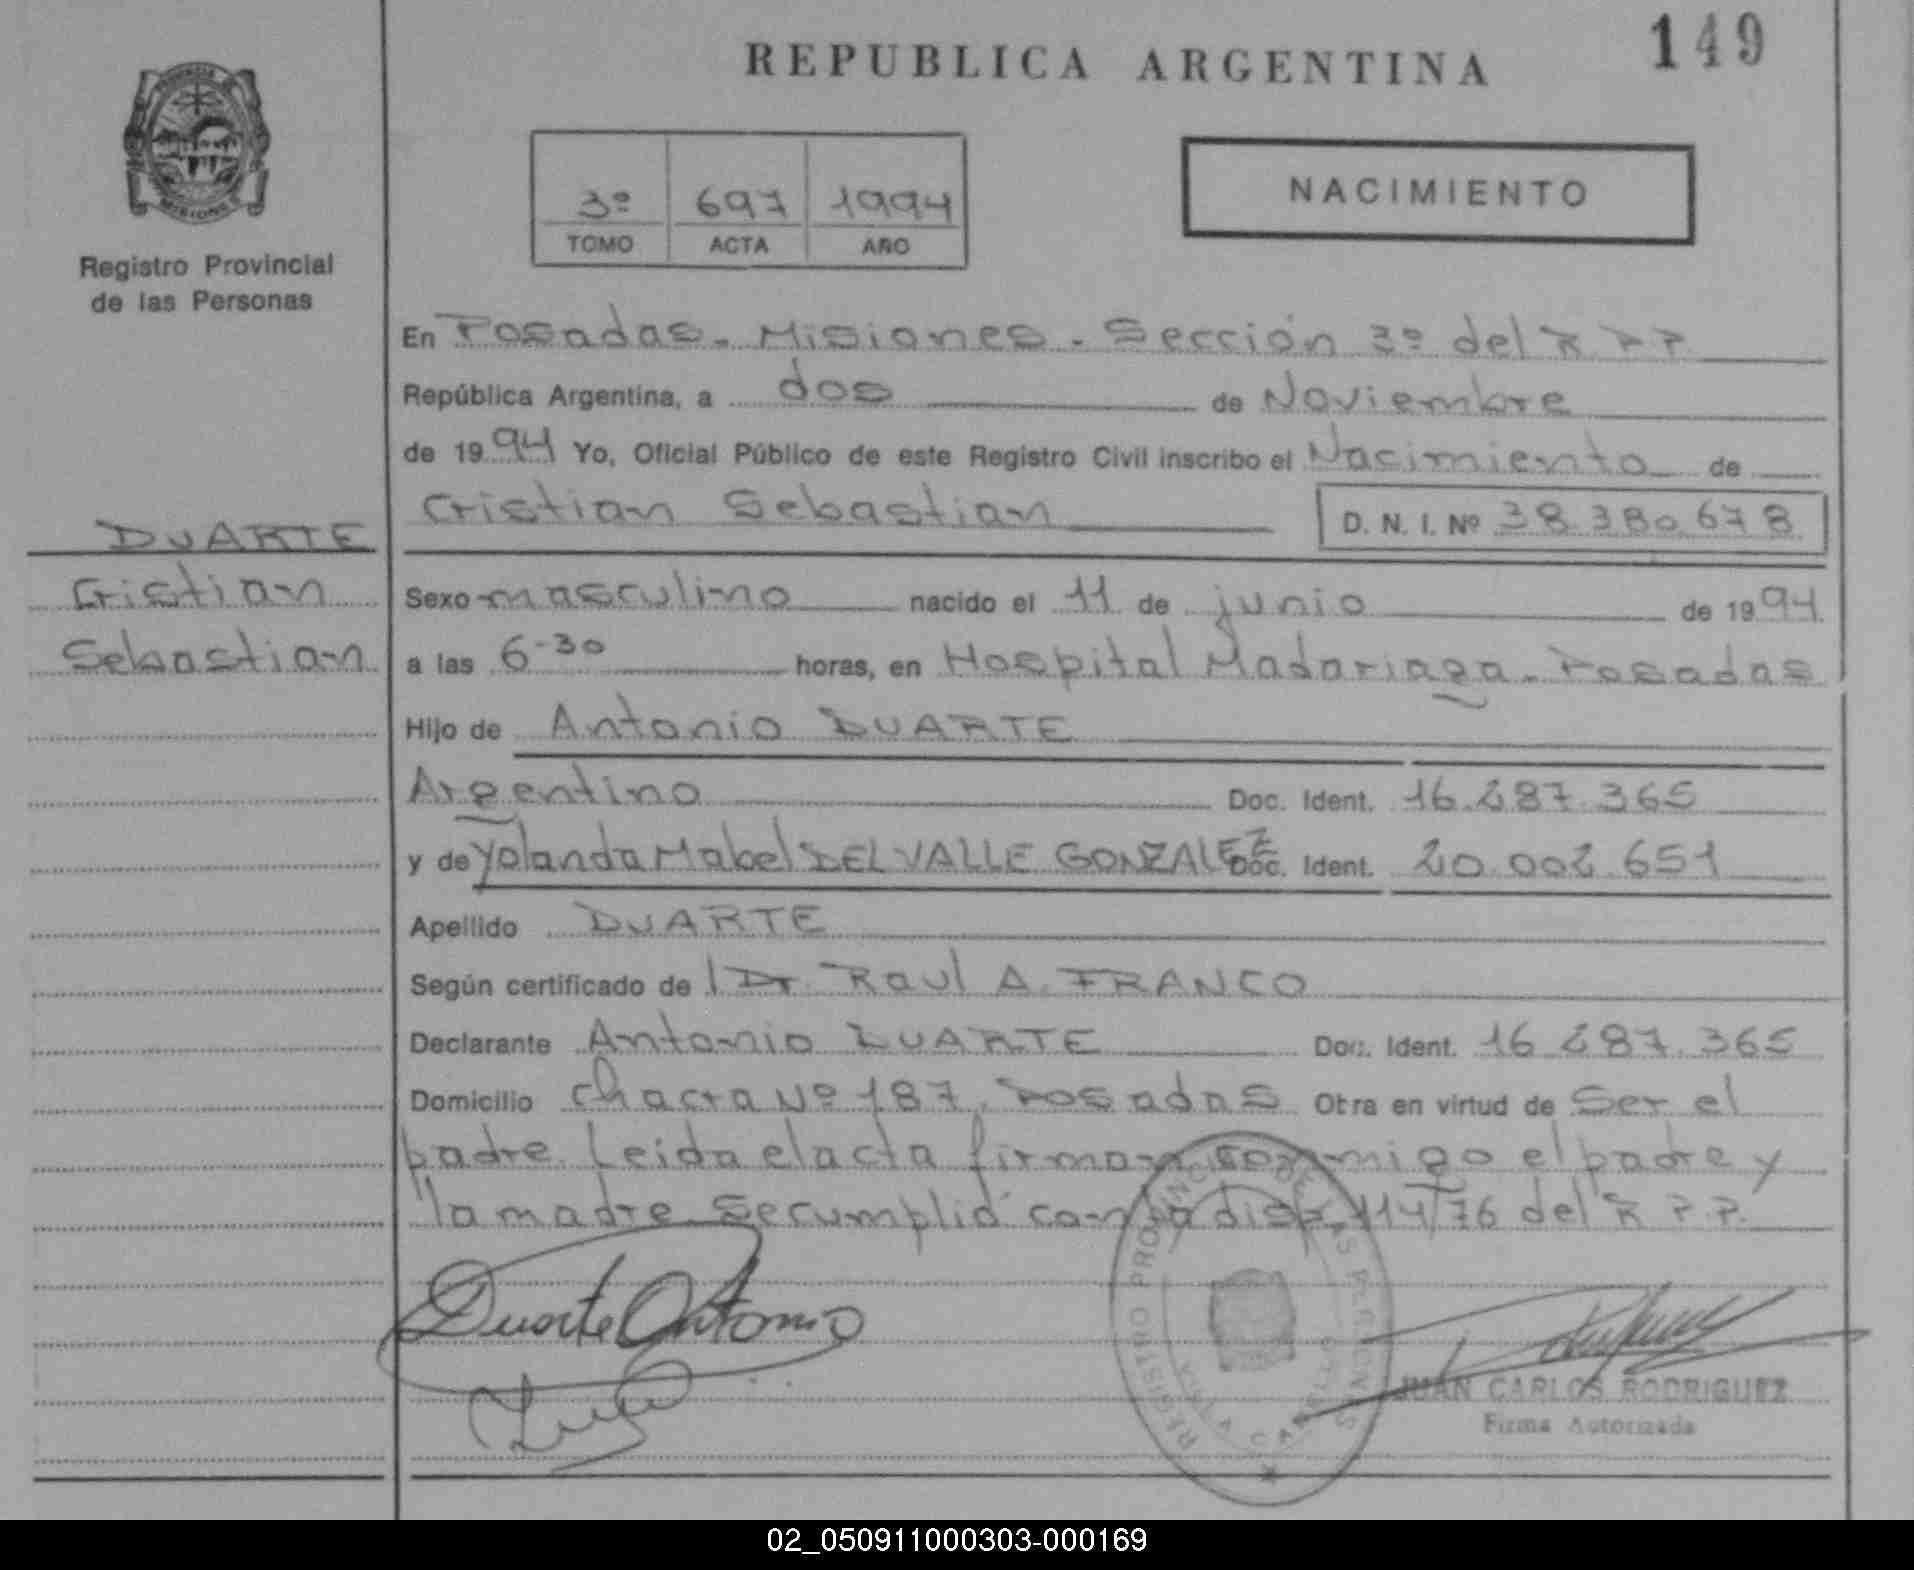 149
REPUBLICA ARGENTINA
MISIONES
Registro Provincial
de las Personas
3º 697 1994
TOMO ACTA AÑO
NACIMIENTO
En Posadas - Misiones - Sección 3º del R P P
República Argentina, a dos de Noviembre
de 1994 Yo, Oficial Público de este Registro Civil inscribo el Nacimiento de
Cristian Sebastian D. N. I. Nº 38.380.678
DUARTE
Cristian
Sebastian
Sexo masculino nacido el 11 de junio de 1994
a las 6-30 horas, en Hospital Madariaga - Posadas
Hijo de Antonio DUARTE
Argentino Doc. Ident. 16.287.365
y de Yolanda Mabel DEL VALLE GONZALEZ Doc. Ident. 20.002.651
Apellido DUARTE
Según certificado de l Dr. Raul A. FRANCO
Declarante Antonio DUARTE Doc. Ident. 16 287.365
Domicilio Chacra Nº 187, Posadas Otra en virtud de Ser el
padre. Leida el acta firman conmigo el padre y
la madre. Se cumplió con la disp. 114/76 del R P.P.
Duarte Antonio
REGISTRO PROVINCIAL DE LAS PERSONAS
JUAN CARLOS RODRIGUEZ
Firma Autorizada
02_050911000303-000169